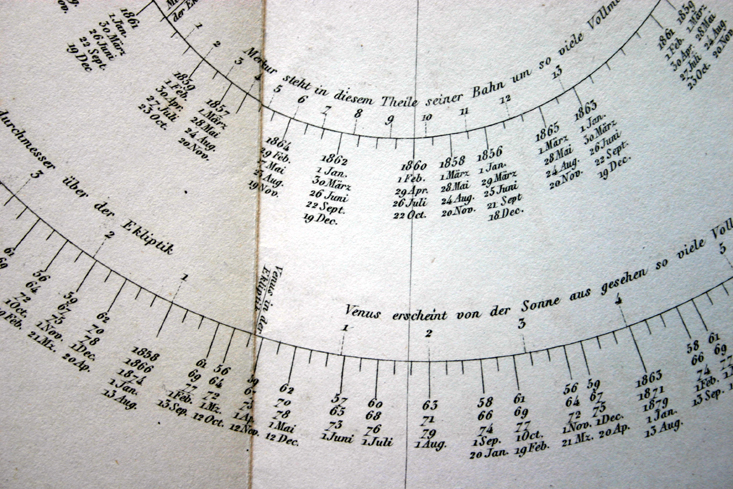 1861
1 Jan.
30 März
26 Juni
22 Sept.
19 Dec.
1859
1 Feb.
30 Apr.
27 Juli
23 Oct.
1857
1 März
28 Mai
24 Aug.
20 Nov.
1 2 3 4 5 6 7 8 9 10 11 12 13
Merkur steht in diesem Theile seiner Bahn um so viele Vollm
1864
29 Feb.
27 Mai
23 Aug.
19 Nov.
1862
1 Jan.
30 März
26 Juni
22 Sept.
19 Dec.
1860
1 Feb.
29 Apr.
26 Juli
22 Oct.
1858
1 März
28 Mai
24 Aug.
20 Nov.
1856
1 Jan.
29 März
25 Juni
21 Sept
18 Dec.
1865
1 März
28 Mai
24 Aug.
20 Nov.
1863
1 Jan.
30 März
26 Juni
22 Sept.
19 Dec.
1861
1 Feb.
30 Apr.
27 Juli
23 Oct.
1859
1 März
28 Mai
24 Aug.
20 Nov.
durchmesser über der Ekliptik
3 2 1
Venus in der
Ekliptik
Venus erscheint von der Sonne aus gesehen so viele Voll
1 2 3 4 5
61
69
56
64
72
1 Oct.
19 Feb.
59
67
75
1 Nov.
21 Mz.
62
70
78
1 Dec.
20 Ap.
1858
1866
1874
1 Jan.
13 Aug.
61
69
77
1 Feb.
13 Sep.
56
64
72
1 Mz.
12 Oct.
59
67
75
1 Ap.
12 Nov.
62
70
78
1 Mai
12 Dec.
57
65
73
1 Juni
60
68
76
1 Juli
63
71
79
1 Aug.
58
66
74
1 Sep.
20 Jan.
61
69
77
1 Oct.
19 Feb.
56
64
72
1 Nov.
21 Mz.
59
67
75
1 Dec.
20 Ap.
1863
1871
1879
1 Jan.
13 Aug.
58
66
74
1 Feb.
13 Sep
61
69
77